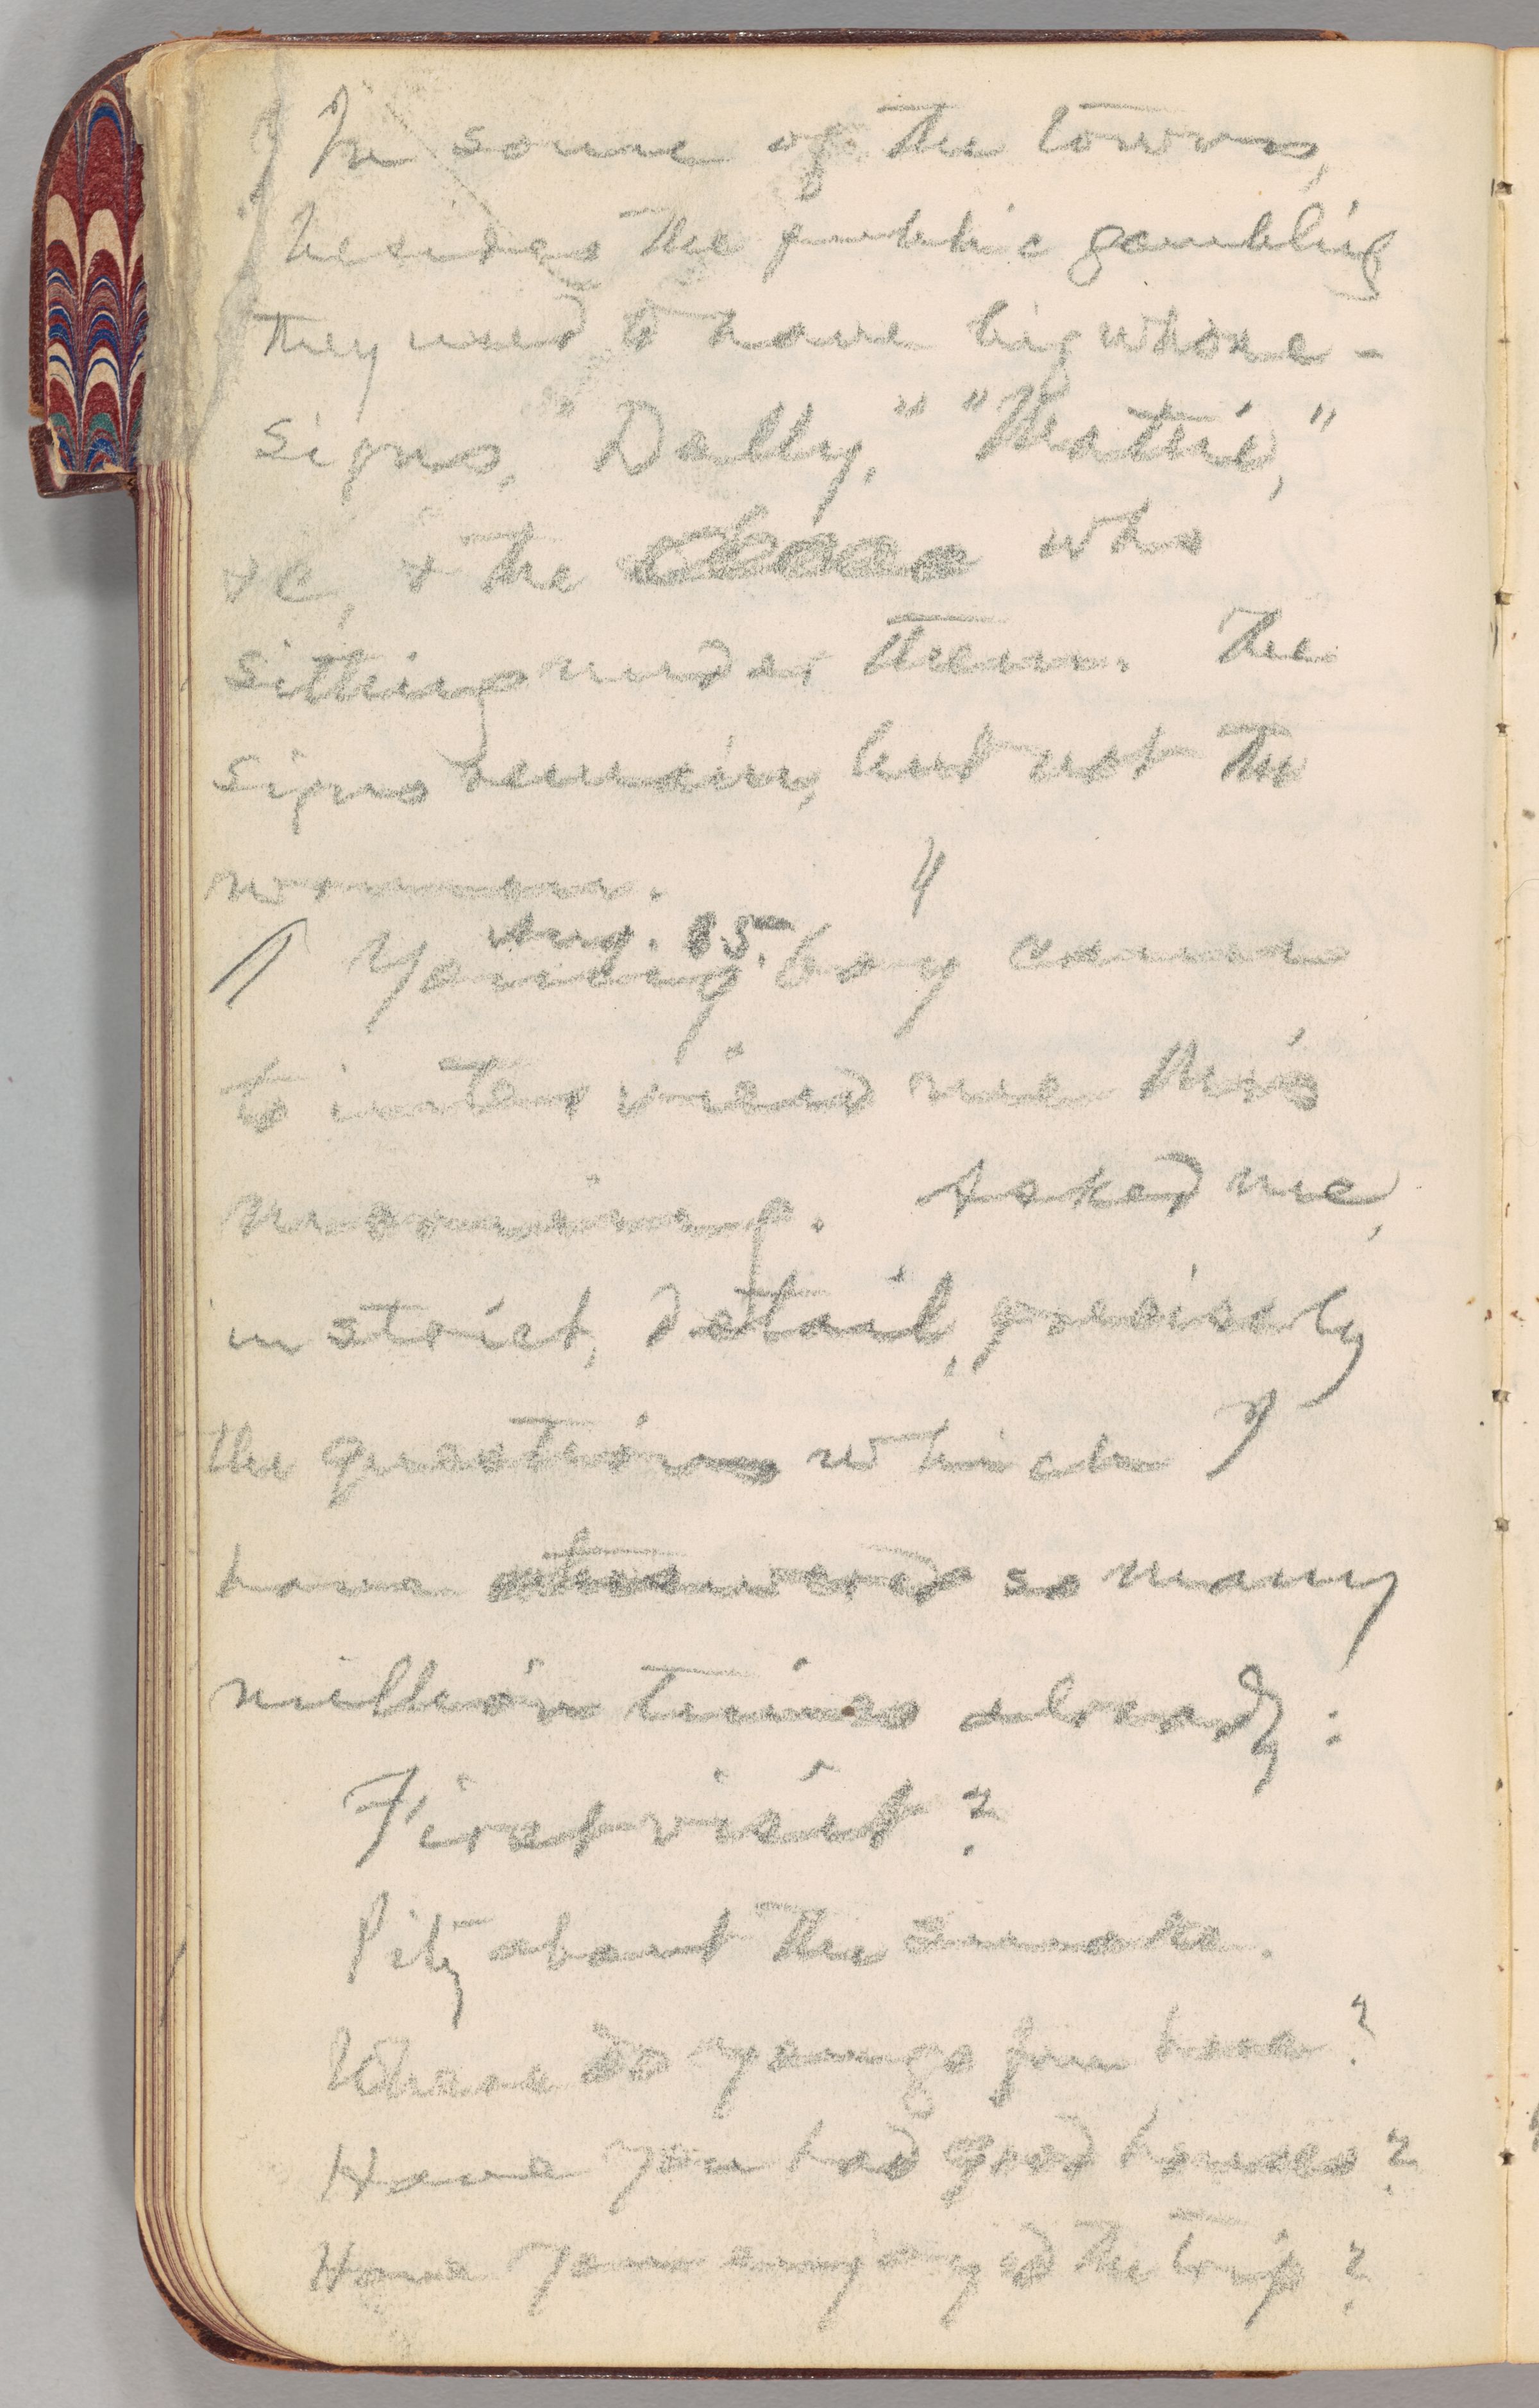 ¶ In some of the towns,
besides the public gambling
they used to have big whore-
signs, "Dolly," "Mattie,"
&c, & the who
sitting under them. The
signs remain, but not the
women.
Aug. 5.
Young boy came
to interview me this
morning. Asked me,
in strict, detail, precisely
the questions which I
have answered so many
million times already:
First visit?
Pity about the smoke.
Where do you go from here?
Have you had good houses?
Have you enjoyed the trip?